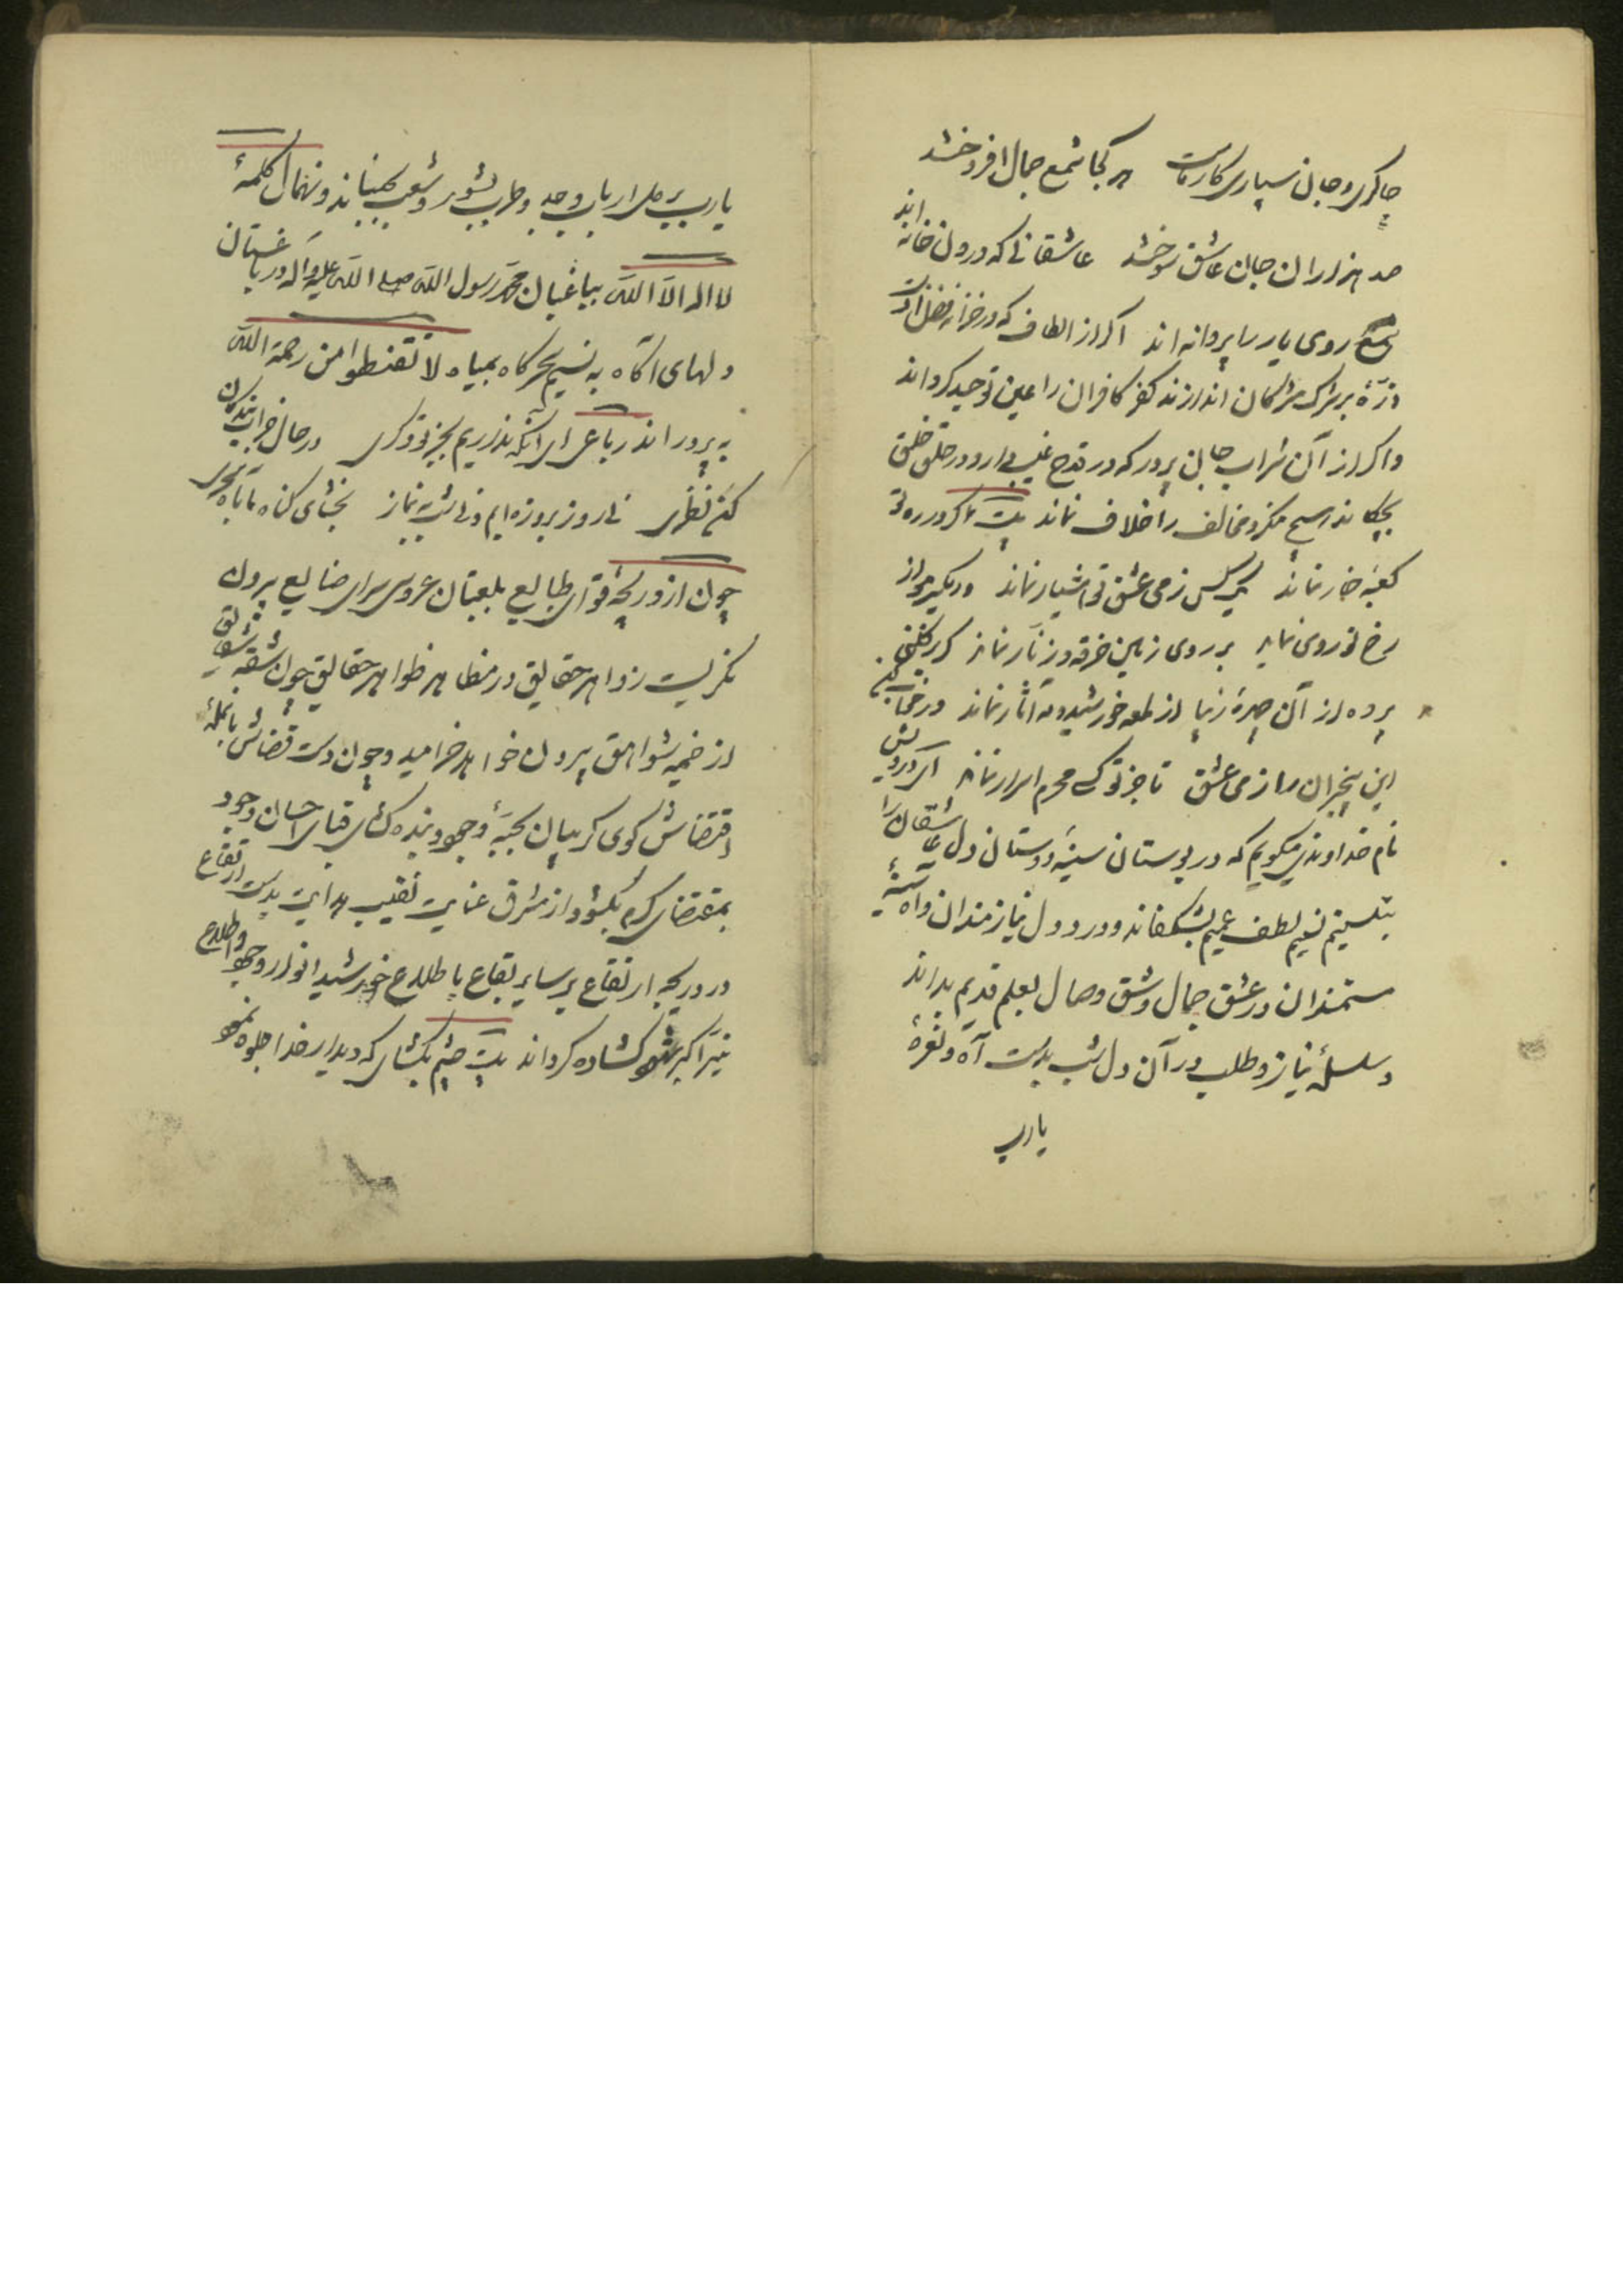 چاکری و جان سپاری کار ماست هر کجا شمع جمال افروختند
صد هزاران جان عاشق سوختند عاشقانی که درون خانه اند
شمع روی یار را پروانه اند اگر از الطاف که در خزانه فضل اوست
ذرّهٔ بر شرک مشرکان اندازند کفر کافران را عین توحید گرداند
و اگر از آن شراب جان پرور که در قدح غیب دارد در حلق خلق
بچکاند هیچ منکر و مخالف را خلاف نماند بیت تا کرد ره تو
کعبه خار نماند یک کس ز می عشق تو هشیار نماند ور یکسر مو از
رخ تو روی نماید بر روی زمین خرقه و زنّار نماند گر برفکنی
پرده از آن چهرهٔ زیبا از لمعه خورشید و مه آثار نماند
این بیخبران را ز می عشق تا جز تو کسی محرم اسرار نماند
نام خداوندی میگویم که در بوستان سینهٔ دوستان دل عاشقان را
بنسیم لطف عمیم بشکفاند و درد دل نیازمندان و آه سینهٔ
مستمندان در عشق جمال و شوق وصال بعلم قدیم بداند
و سلسلهٔ نیاز و طلب در آن دل شب بدست آه و نعرهٔ
یارب
یارب بر دل ارباب وجد و طرب بشور و شعب بجنباند و نهال کلمهٔ
لا اله الا الله بباغبان محمّد رسول الله صلی الله علیه و اله در باغستان
دلهای آگاه به نسیم سحرگاه بمیاه لا تقنطوا من رحمة الله
بپروراند رباعی ای آنکه نداریم بجز تو دگری در حال خراب بندگان
کن نظری نی روز بروزه ایم و نی شب بنماز بخشای گناه ما بآه سحری
چون از دریچه قوای طبایع بلعبتان عروس سرای صنایع بیرون
نگریست زواهر حقایق در مظاهر ظواهر حقایق چون شقه شقایق
از خیمه شواهق بیرون خواهد خرامید و چون دست قضاش بانملهٔ
اقتضاش گوی گریبان جبّهٔ وجود بنده گشای قبای احسان وجود
بمقتضای کرم بگشود از مشرق عنایت نقیب هدایت بدست ارتفاع
در دریچه ارتفاع بر سایر بقاع باطلاع خورشید انوار وجود
نیّر اکبر شهود گشاده گرداند بیت چشم بگشای که دیدار خدا جلوه نمود